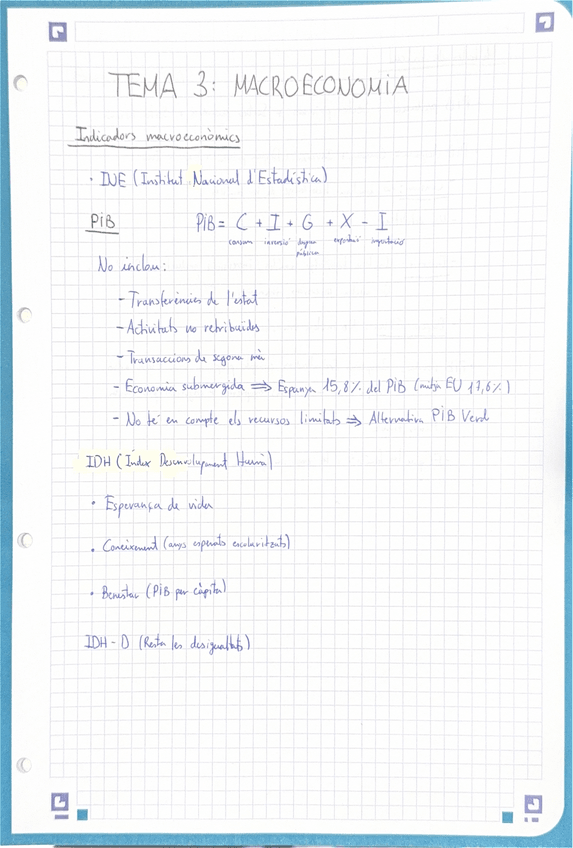 TEMA 3: MACROECONOMIA
Indicadors macroeconòmics
· INE (Institut Nacional d'Estadística)
PiB PiB = C + I + G + X - I
consum inversió despesa pública exportació importació
No inclou:
- Transferències de l'estat
- Activitats no retribuïdes
- Transaccions de segona mà
- Economia submergida ⇒ Espanya 15,8% del PiB (mitja EU 17,6%)
- No té en compte els recursos limitats ⇒ Alternativa PiB Verd
IDH (Índex Desenvolupament Humà)
· Esperança de vida
· Coneixement (anys esperats escolaritzats)
· Benestar (PiB per càpita)
IDH - D (Resta les desigualtats)